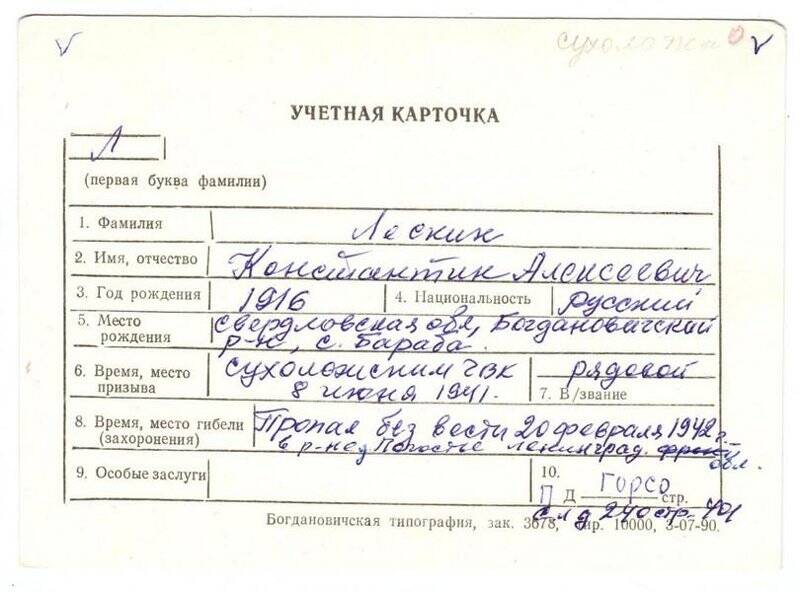 УЧЕТНАЯ КАРТОЧКА
Л
(первая буква фамилии)
1. Фамилия Лескин
2. Имя, отчество Константин Алексеевич
3. Год рождения 1916 4. Национальность русский
5. Место рождения Свердловская обл, Богдановичский
р-н, с. Бараба.
6. Время, место призыва Сухоложским ГВК
8 июня 1941.
рядовой
7. В/звание
8. Время, место гибели (захоронения) Пропал без вести 20 февраля 1942 г.
в р-не д Погостье Ленинград. обл.
9. Особые заслуги
10.
П Д горсо стр.
сл д 240 стр. 401
Богдановичская типография, зак. 3678, тир. 10000, 3-07-90.